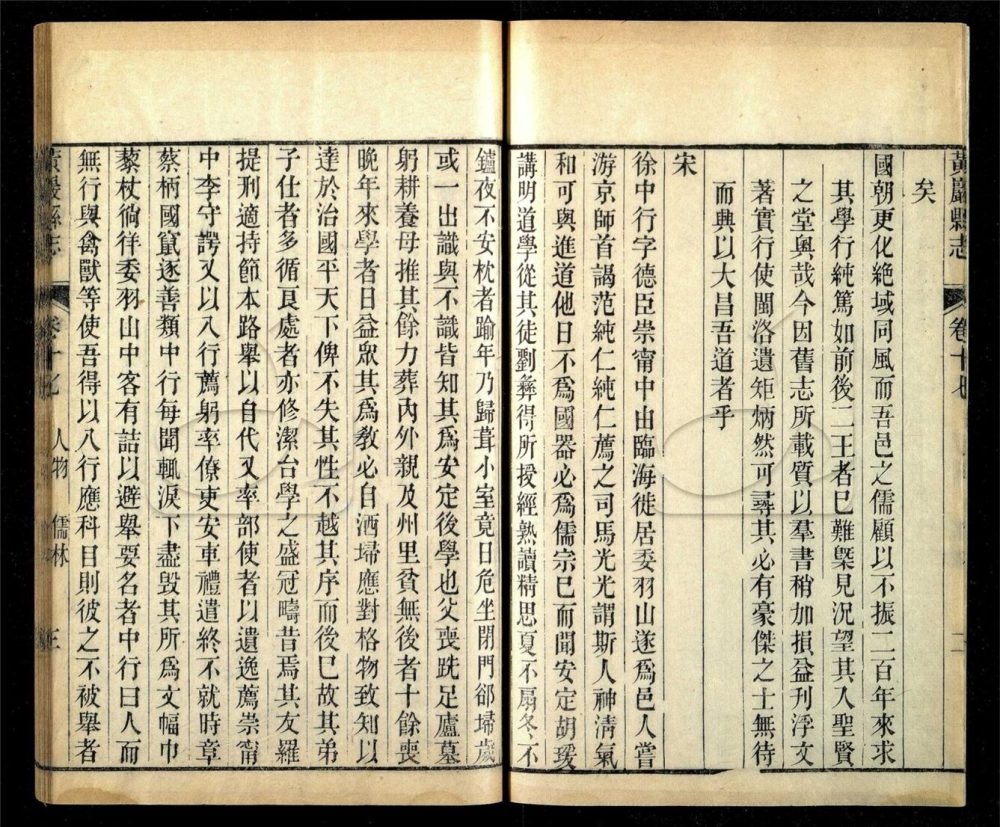 黃巖縣志
卷十九
矣
國朝更化絶域同風而吾邑之儒顧以不振二百年來求
其學行純篤如前後二王者已難槩見況望其入聖賢
之堂奧哉今因舊志所載質以羣書稍加損益刊浮文
著實行使閩洛遺矩炳然可尋其必有豪傑之士無待
而興以大昌吾道者乎
宋
徐中行字德臣崇甯中由臨海徙居委羽山遂爲邑人嘗
游京師首謁范純仁純仁薦之司馬光光謂斯人神清氣
和可與進道他日不爲國器必爲儒宗已而聞安定胡瑗
講明道學從其徒劉彝得所授經熟讀精思夏不扇冬不
鑪夜不安枕者踰年乃歸葺小室竟日危坐閉門郤埽歲
或一出識與不識皆知其爲安定後學也父喪跣足廬墓
躬耕養母推其餘力葬內外親及州里貧無後者十餘喪
晚年來學者日益眾其爲教必自洒埽應對格物致知以
達於治國平天下俾不失其性不越其序而後已故其弟
子仕者多循良處者亦修潔台學之盛冠疇昔焉其友羅
提刑適持節本路舉以自代又率部使者以遺逸薦崇甯
中李守諤又以八行薦躬率僚吏安車禮遣終不就時章
蔡柄國竄逐善類中行每聞輒淚下盡毀其所爲文幅巾
藜杖徜徉委羽山中客有詰以避舉要名者中行曰人而
無行與禽獸等使吾得以八行應科目則彼之不被舉者
黃巖縣志
人物
儒林
三